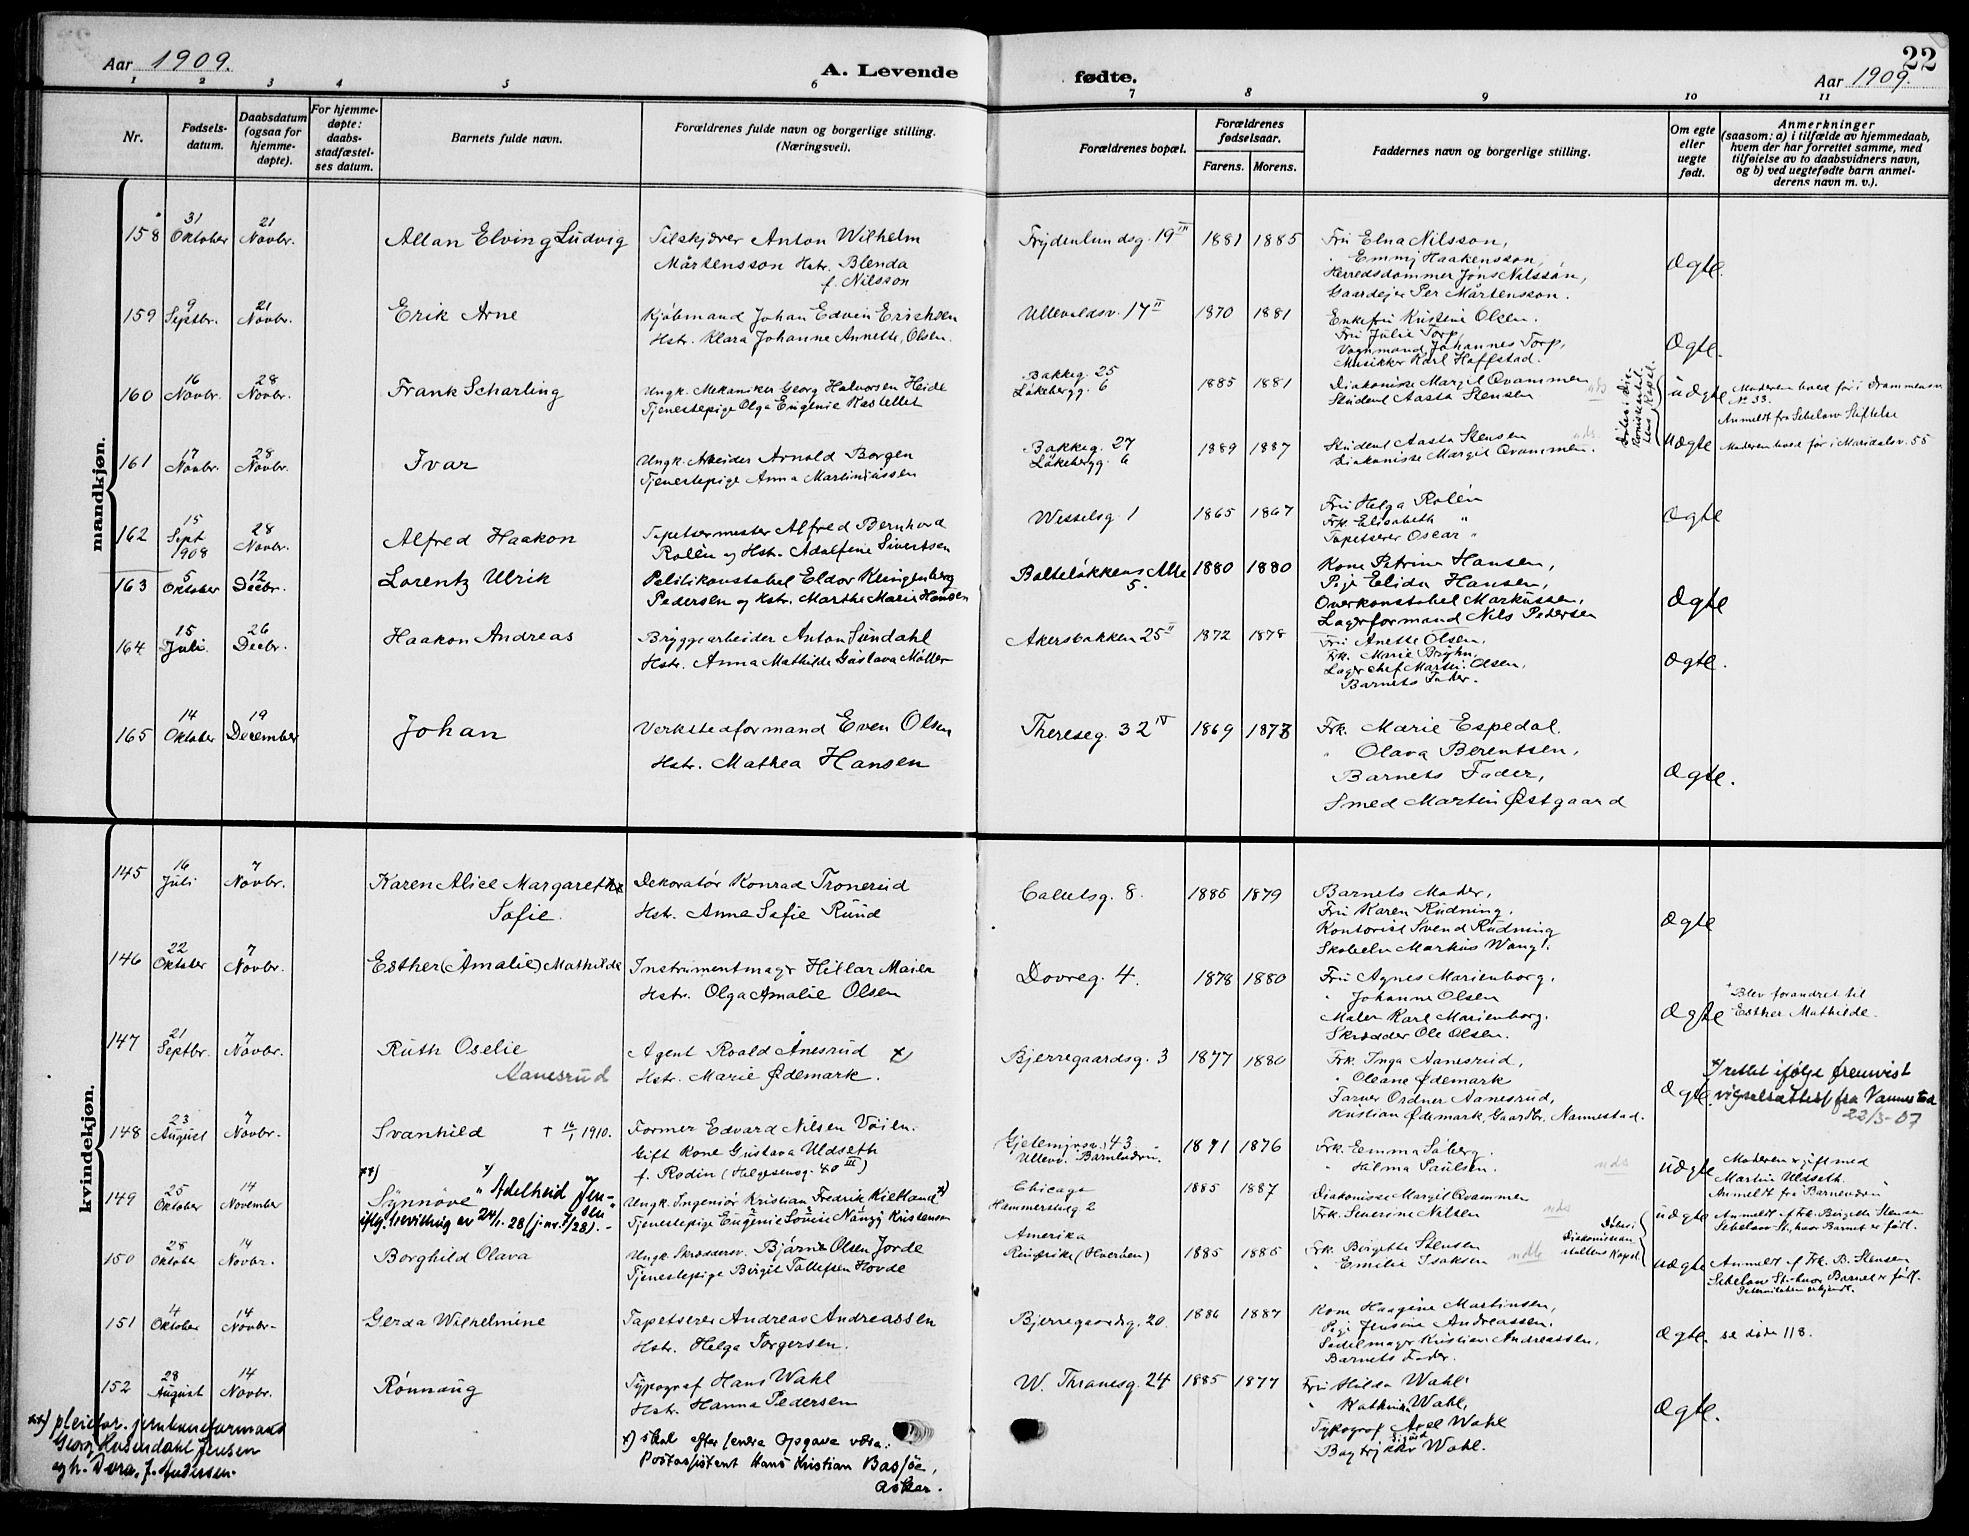 Aar 1909.
A. Levende fødte.
Aar 1909.
22
1 2 3 4 5 6 7 8 9 10 11
Nr.
Fødsels-datum.
Daabsdatum (ogsaa for hjemme-døpte).
For hjemme-døpte: daabs-stadfæstel-ses datum.
Barnets fulde navn.
Forældrenes fulde navn og borgerlige stilling. (Næringsvei).
Forældrenes bopæl.
Forældrenes fødselsaar.
Farens. Morens.
Faddernes navn og borgerlige stilling.
Om egte eller uegte født.
Anmerkninger (saasom: a) i tilfælde av hjemmedaab, hvem der har forrettet samme, med tilføielse av to daabsvidners navn, og b) ved uegtefødte barn anmel-derens navn m. v.).
mandkjøn.
158 31 Oktober 21 Novbr. Allan Elving Ludvig
Tilskjærer Anton Wilhelm
Mårtensson Hstr. Blenda
f. Nilsson
Frydenlundsg. 19 III 1881 1885
Fru Elna Nilsson,
" Emmy Haakensson,
Herredsdommer Jöns Nilsson,
Gaardejer Per Mårtensson.
Ægte.
159 9 Septbr. 21 Novbr. Erik Arne
Kjøbmand Johan Edvin Erichsen
Hstr. Klara Johanne Annette Olsen.
Ullevoldsv. 17 II 1870 1881
Enkefru Kristine Olsen.
Fru Julie Torp,
Vognmand Johannes Torp,
Musikker Karl Haffstad.
Ægte.
160 16 Novbr. 28 Novbr. Frank Scharling
Ungk. Mekaniker Georg Halvorsen Heide
Tjenestepige Olga Eugenie Kastellet
Bakkeg. 25
Løkebergg. 6 1885 1881
Diakonisse Margit Qvammen
Student Aasta Stensen
uægte
Moderen boed før i Drammensv
No 33.
Anmeldt fra Sebelow Stiftelse
161 17 Novbr. 28 Novbr. Ivar
Ungk. Arbeider Arnold Borgen
Tjenestepige Anna Martiniussen
Bakkeg. 27
Løkebergg. 6 1889 1887
Student Aasta Stensen
Diakonisse Margit Qvammen.
uægte Moderen boed før i Maridalsv. 55
162 15 Sept 1908 28 Novbr. Alfred Haakon
Tapetsermester Alfred Bernhard
Rolén og Hstr. Adolfine Sivertsen
Wesselsg. 1 1865 1867
Fru Helga Rolén
Frk. Elisabeth "
Tapetserer Oscar "
Ægte
163 5 Oktober 12 Decbr. Lorentz Ulrik
Politikonstabel Eldor Klingenberg
Pedersen og Hstr. Marthe Marie Hansen
Bolteløkkens Alle
5. 1880 1880
Kone Petrine Hansen,
Pige Elida Hansen,
Overkonstabel Markussen,
Lagerformand Nils Pedersen
Ægte
164 15 Juli 26 Decbr. Haakon Andreas
Bryggearbeider Anton Sundahl
Hstr. Anna Mathilde Gustava Møller
Akersbakken 25 II 1872 1878
Fru Anette Olsen,
Frk. Marie Bryhn,
Lagerchef Martin Olsen,
Barnets Fader.
Ægte.
165 14 Oktober 19 December Johan
Verkstedformand Even Olsen
Hstr. Mathea Hansen
Thereseg. 32 IV 1869 1878
Frk. Marie Espedal.
" Olava Berentsen,
Barnets Fader,
Smed Martin Østgaard
Ægte.
kvindekjøn.
145 16 Juli 7 Novbr. Karen Alice Margarethe
Sofie.
Dekoratør Konrad Tronerud
Hst. Anne Sofie Ruud
Calmeyersg. 8. 1885 1879
Barnets Moder,
Fru Karen Rudning,
Kontorist Svend Rudning
Skobeln Markus Wang.
Ægte
146 22 Oktober 7 Novbr. Esther (Amalie) Mathilde
Instrumentmagr Hillar Maier
Hstr. Olga Amalie Olsen
Dovreg. 4. 1878 1880
Fru Agnes Marienborg.
" Johanne Olsen
Maler Karl Marienborg.
Skrædder Ole Olsen.
Ægte
Blev forandret til
Esther Mathilde.
147 21 Septbr. 7 Novbr. Ruth Oselie
Aanesrud
Agent Roald Ånesrud x)
Hstr. Marie Ødemark.
Bjerregaardsg. 3 1877 1880
Frk. Inga Aanesrud,
" Oleane Ødemark
Farver Ordner Aanesrud,
Kristian Ødemark, Gaardbr., Nannestad.
Ægte
x) rettet ifølge fremvist
vigselsattest fra Nannestad
22/3-07
148 23 August 7 Novbr. Svanhild † 16/1 1910.
Former Edvard Nilsen Vøien.
Gift Kone Gustava Uldseth
f. Rodin (Helgesensg. 40 III)
Gjetemyrsv. 43.
Ullev. Barnehedm. 1871 1876
Frk. Emma Søberg.
" Hilma Paulsen.
uægte
Moderen er gift med
Martin Uldseth.
Anmeldt fra
149 25 Oktober 14 November
xx) Synnøve x) Adelheid Jensen
iflg. bevilling av 24/1. 28 (j.nr. 7/28).
Ungk. Ingeniør Kristian Fredrik Kielland x)
Tjenestepige Eugenie Lovise Nanzy Kristensen
Chicago
Hammerstadg 2 1885 1887
Diakonisse Margit Qvammen
Frk. Severine Nilsen
uægte
Anmeldt af Frk. Birgitte Stensen
Sebelow St., hvor Barnet er født.
150 28 Oktober 14 Novbr. Borghild Olava
Ungk. Skræddersv. Bjarne Olsen Jorde
Tjenestepige Birgit Tollefsen Hovde
Amerika
Ringerike (Hverven) 1885 1885
Frk. Birgitte Stensen
" Emilie Isaksen
uægte
Anmeldt af Frk. B. Stensen
Sebelow St. hvor Barnet er født.
Paterniteten erkjendt.
151 4 Oktober 14 Novbr. Gerda Wilhelmine
Tapetserer Andreas Andreassen
Hstr. Helga Torgersen.
Bjerregaardsg. 20. 1886 1887
Kone Haagine Martinsen,
Pige Jensine Andreassen.
Sadelmagr Kristian Andreassen,
Barnets Fader.
Ægte. se døde 118.
152 28 August 14 Novbr. Rønnaug
Typograf Hans Wahl
Hstr. Hanna Pedersen
W. Thranesg. 24 1885 1877
Fru Hilda Wahl.
" Kathinka Wahl,
Typograf Axel Wahl
Bogtrykker Sigurd Wahl.
Ægte.
xx) pleiefor. jernbaneformand
Georg Husendahl Jensen
og h. Dora, f. Andersen.
x) skal efter senere opgave være:
Postassistent Hans Kristian Basjøe,
Asker.